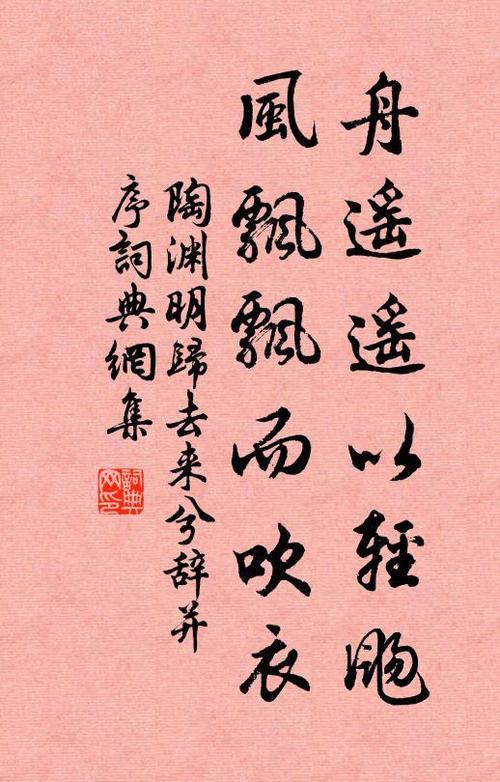 舟遥遥以輕颺
風飄飄而吹衣
陶渊明歸去来兮辞并
序詞典網集
詞典
网印